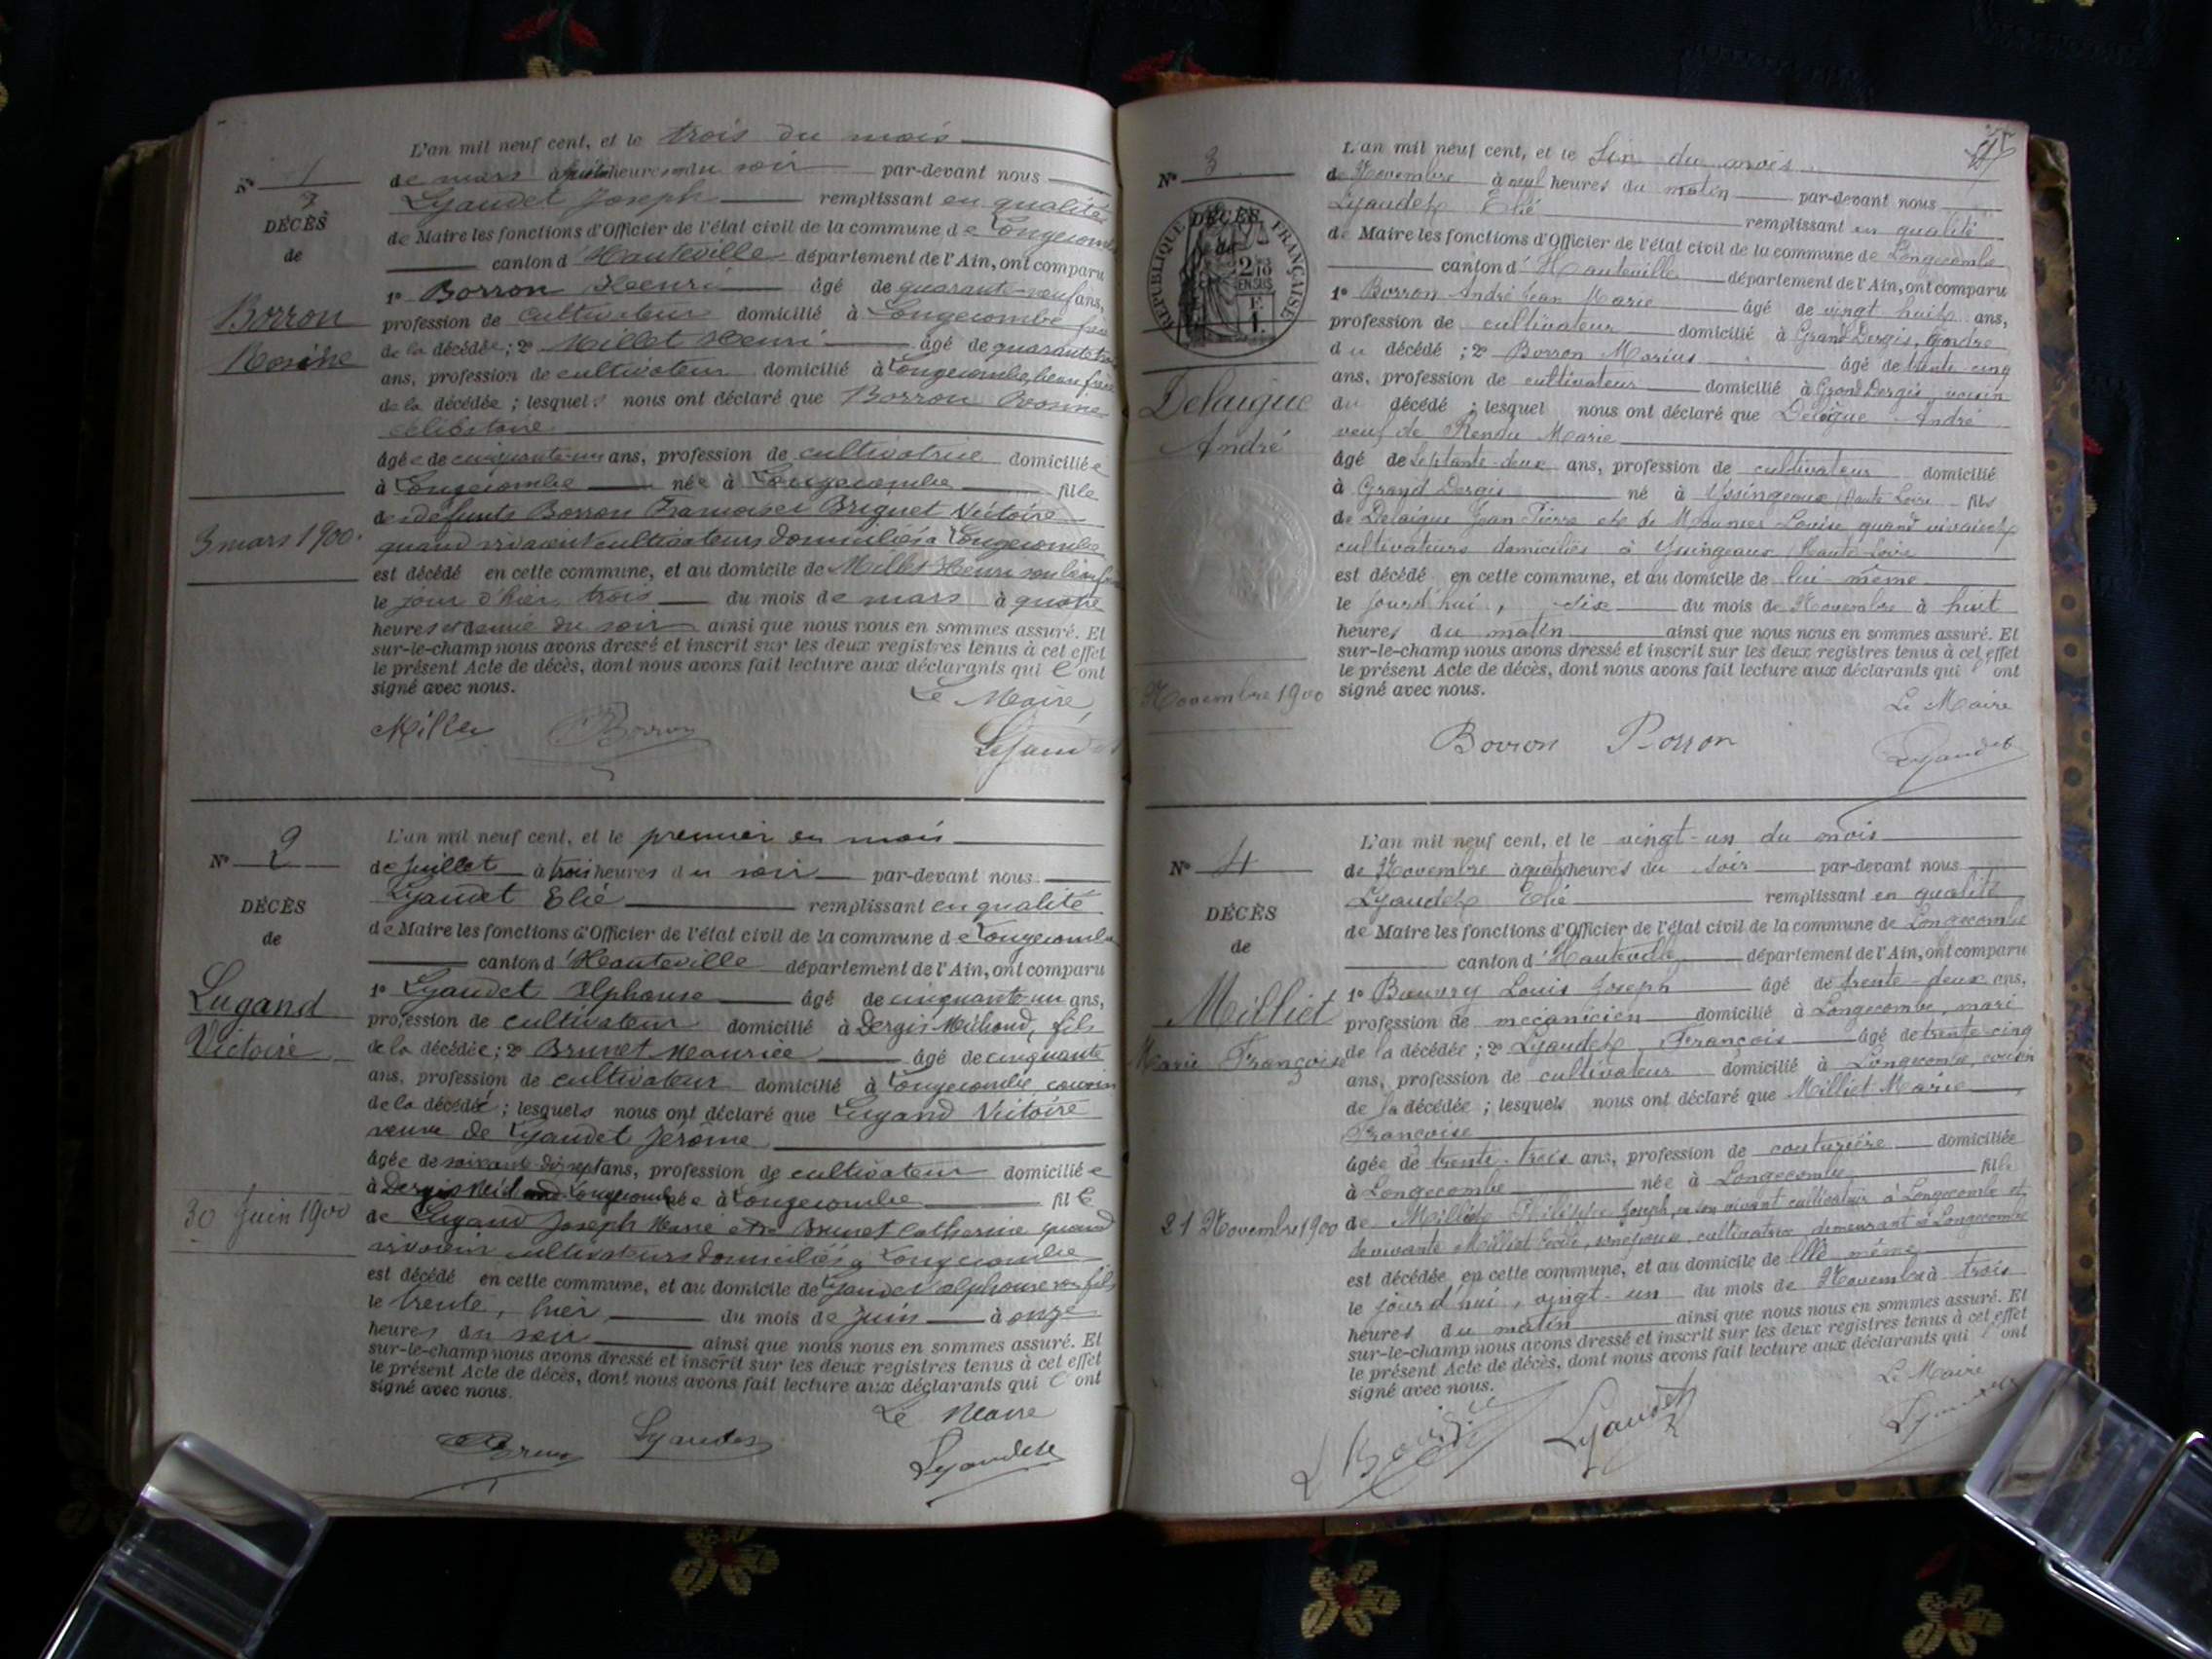 L'an mil neuf cent, et le trois du mois
Nº 1
de mars à heures du soir par-devant nous
Lyaudet Joseph remplissant en qualité
DÉCÈS
de Maire les fonctions d'Officier de l'état civil de la commune de Longecombe
de
canton d'Hauteville département de l'Ain, ont comparu
1º Borron Henri âgé de quarante-neuf ans,
Borron
profession de cultivateur domicilié à Longecombe
de la décédée; 2º Millet Henri âgé de quarante
ans, profession de cultivateur domicilié à Longecombe, beau frère
de la décédée; lesquels nous ont déclaré que Borron
célibataire
âgée de cinquante-un ans, profession de cultivatrice domiciliée
à Longecombe née à Longecombe fille
de défunts Borron François et Briguet Victoire
3 mars 1900.
quand vivaient cultivateurs domiciliés à Longecombe
est décédé en cette commune, et au domicile de Millet Henri son beau frère
le jour d'hier, trois du mois de mars à quatre
heures et demie du soir ainsi que nous nous en sommes assuré. Et
sur-le-champ nous avons dressé et inscrit sur les deux registres tenus à cet effet
le présent Acte de décès, dont nous avons fait lecture aux déclarants qui l'ont
signé avec nous.
Le Maire
Millet Borron Lyaudet
L'an mil neuf cent, et le premier du mois
Nº 2
de Juillet à trois heures du soir par-devant nous
Lyaudet Elié remplissant en qualité
DÉCÈS
de Maire les fonctions d'Officier de l'état civil de la commune de Longecombe
de
canton d'Hauteville département de l'Ain, ont comparu
1º Lyaudet Alphonse âgé de cinquante-un ans,
Lugand
profession de cultivateur domicilié à Dergis Michaud, fils
Victoire
de la décédée; 2º Brunet Maurice âgé de cinquante
ans, profession de cultivateur domicilié à Longecombe, cousin
de la décédée; lesquels nous ont déclaré que Lugand Victoire
veuve de Lyaudet Jérôme
âgée de soixante-dix-sept ans, profession de cultivateur domiciliée
à Dergis Michaud Longecombe née à Longecombe fille
30 Juin 1900
de Lugand Joseph Marie et de Brunet Catherine quand
vivaient cultivateurs domiciliés à Longecombe
est décédé en cette commune, et au domicile de Lyaudet Alphonse son fils
le trente, hier, du mois de Juin à onze
heures du soir ainsi que nous nous en sommes assuré. Et
sur-le-champ nous avons dressé et inscrit sur les deux registres tenus à cet effet
le présent Acte de décès, dont nous avons fait lecture aux déclarants qui l'ont
signé avec nous.
Le Maire
Brunet Lyaudet Lyaudet
L'an mil neuf cent, et le dix du mois
Nº 3
de Novembre à neuf heures du matin par-devant nous
Lyaudet Elié remplissant en qualité
RÉPUBLIQUE FRANÇAISE
DÉCÈS
de
de Maire les fonctions d'Officier de l'état civil de la commune de Longecombe
canton d'Hauteville département de l'Ain, ont comparu
1º Borron André Jean Marie âgé de vingt huit ans,
profession de cultivateur domicilié à Grand Dergis, gendre
du décédé; 2º Borron Marius âgé de trente cinq
ans, profession de cultivateur domicilié à Grand Dergis, voisin
Delaigue
du décédé; lesquel nous ont déclaré que Delaigue André
André
veuf de Rendu Marie
âgé de septante-deux ans, profession de cultivateur domicilié
à Grand Dergis né à Yssingeaux, Haute Loire fils
de Delaigue Jean Pierre et de Mounier Louise quand vivaient
cultivateurs domiciliés à Yssingeaux, Haute-Loire
est décédé en cette commune, et au domicile de lui même
le jourd'hui, dix du mois de Novembre à huit
heures du matin ainsi que nous nous en sommes assuré. Et
sur-le-champ nous avons dressé et inscrit sur les deux registres tenus à cet effet
le présent Acte de décès, dont nous avons fait lecture aux déclarants qui l'ont
Novembre 1900
signé avec nous.
Le Maire
Borron Borron Lyaudet
L'an mil neuf cent, et le vingt-un du mois
Nº 4
de Novembre à quatre heures du soir par-devant nous
Lyaudet Elié remplissant en qualité
DÉCÈS
de Maire les fonctions d'Officier de l'état civil de la commune de Longecombe
de
canton d'Hauteville département de l'Ain, ont comparu
1º Louis Joseph âgé de trente-deux ans,
Milliet
profession de mécanicien domicilié à Longecombe, mari
Marie Françoise
de la décédée; 2º Lyaudet François âgé de trente cinq
ans, profession de cultivateur domicilié à Longecombe, cousin
de la décédée; lesquels nous ont déclaré que Milliet Marie
Françoise
âgée de trente-trois ans, profession de couturière domiciliée
à Longecombe née à Longecombe fille
21 Novembre 1900
de Milliet Joseph, en son vivant cultivateur à Longecombe et
de vivante Milliet son épouse, cultivatrice demeurant à Longecombe
est décédée en cette commune, et au domicile de Elle même
le jourd'hui, vingt-un du mois de Novembre à trois
heures du matin ainsi que nous nous en sommes assuré. Et
sur-le-champ nous avons dressé et inscrit sur les deux registres tenus à cet effet
le présent Acte de décès, dont nous avons fait lecture aux déclarants qui l'ont
signé avec nous.
Le Maire
Lyaudet Lyaudet